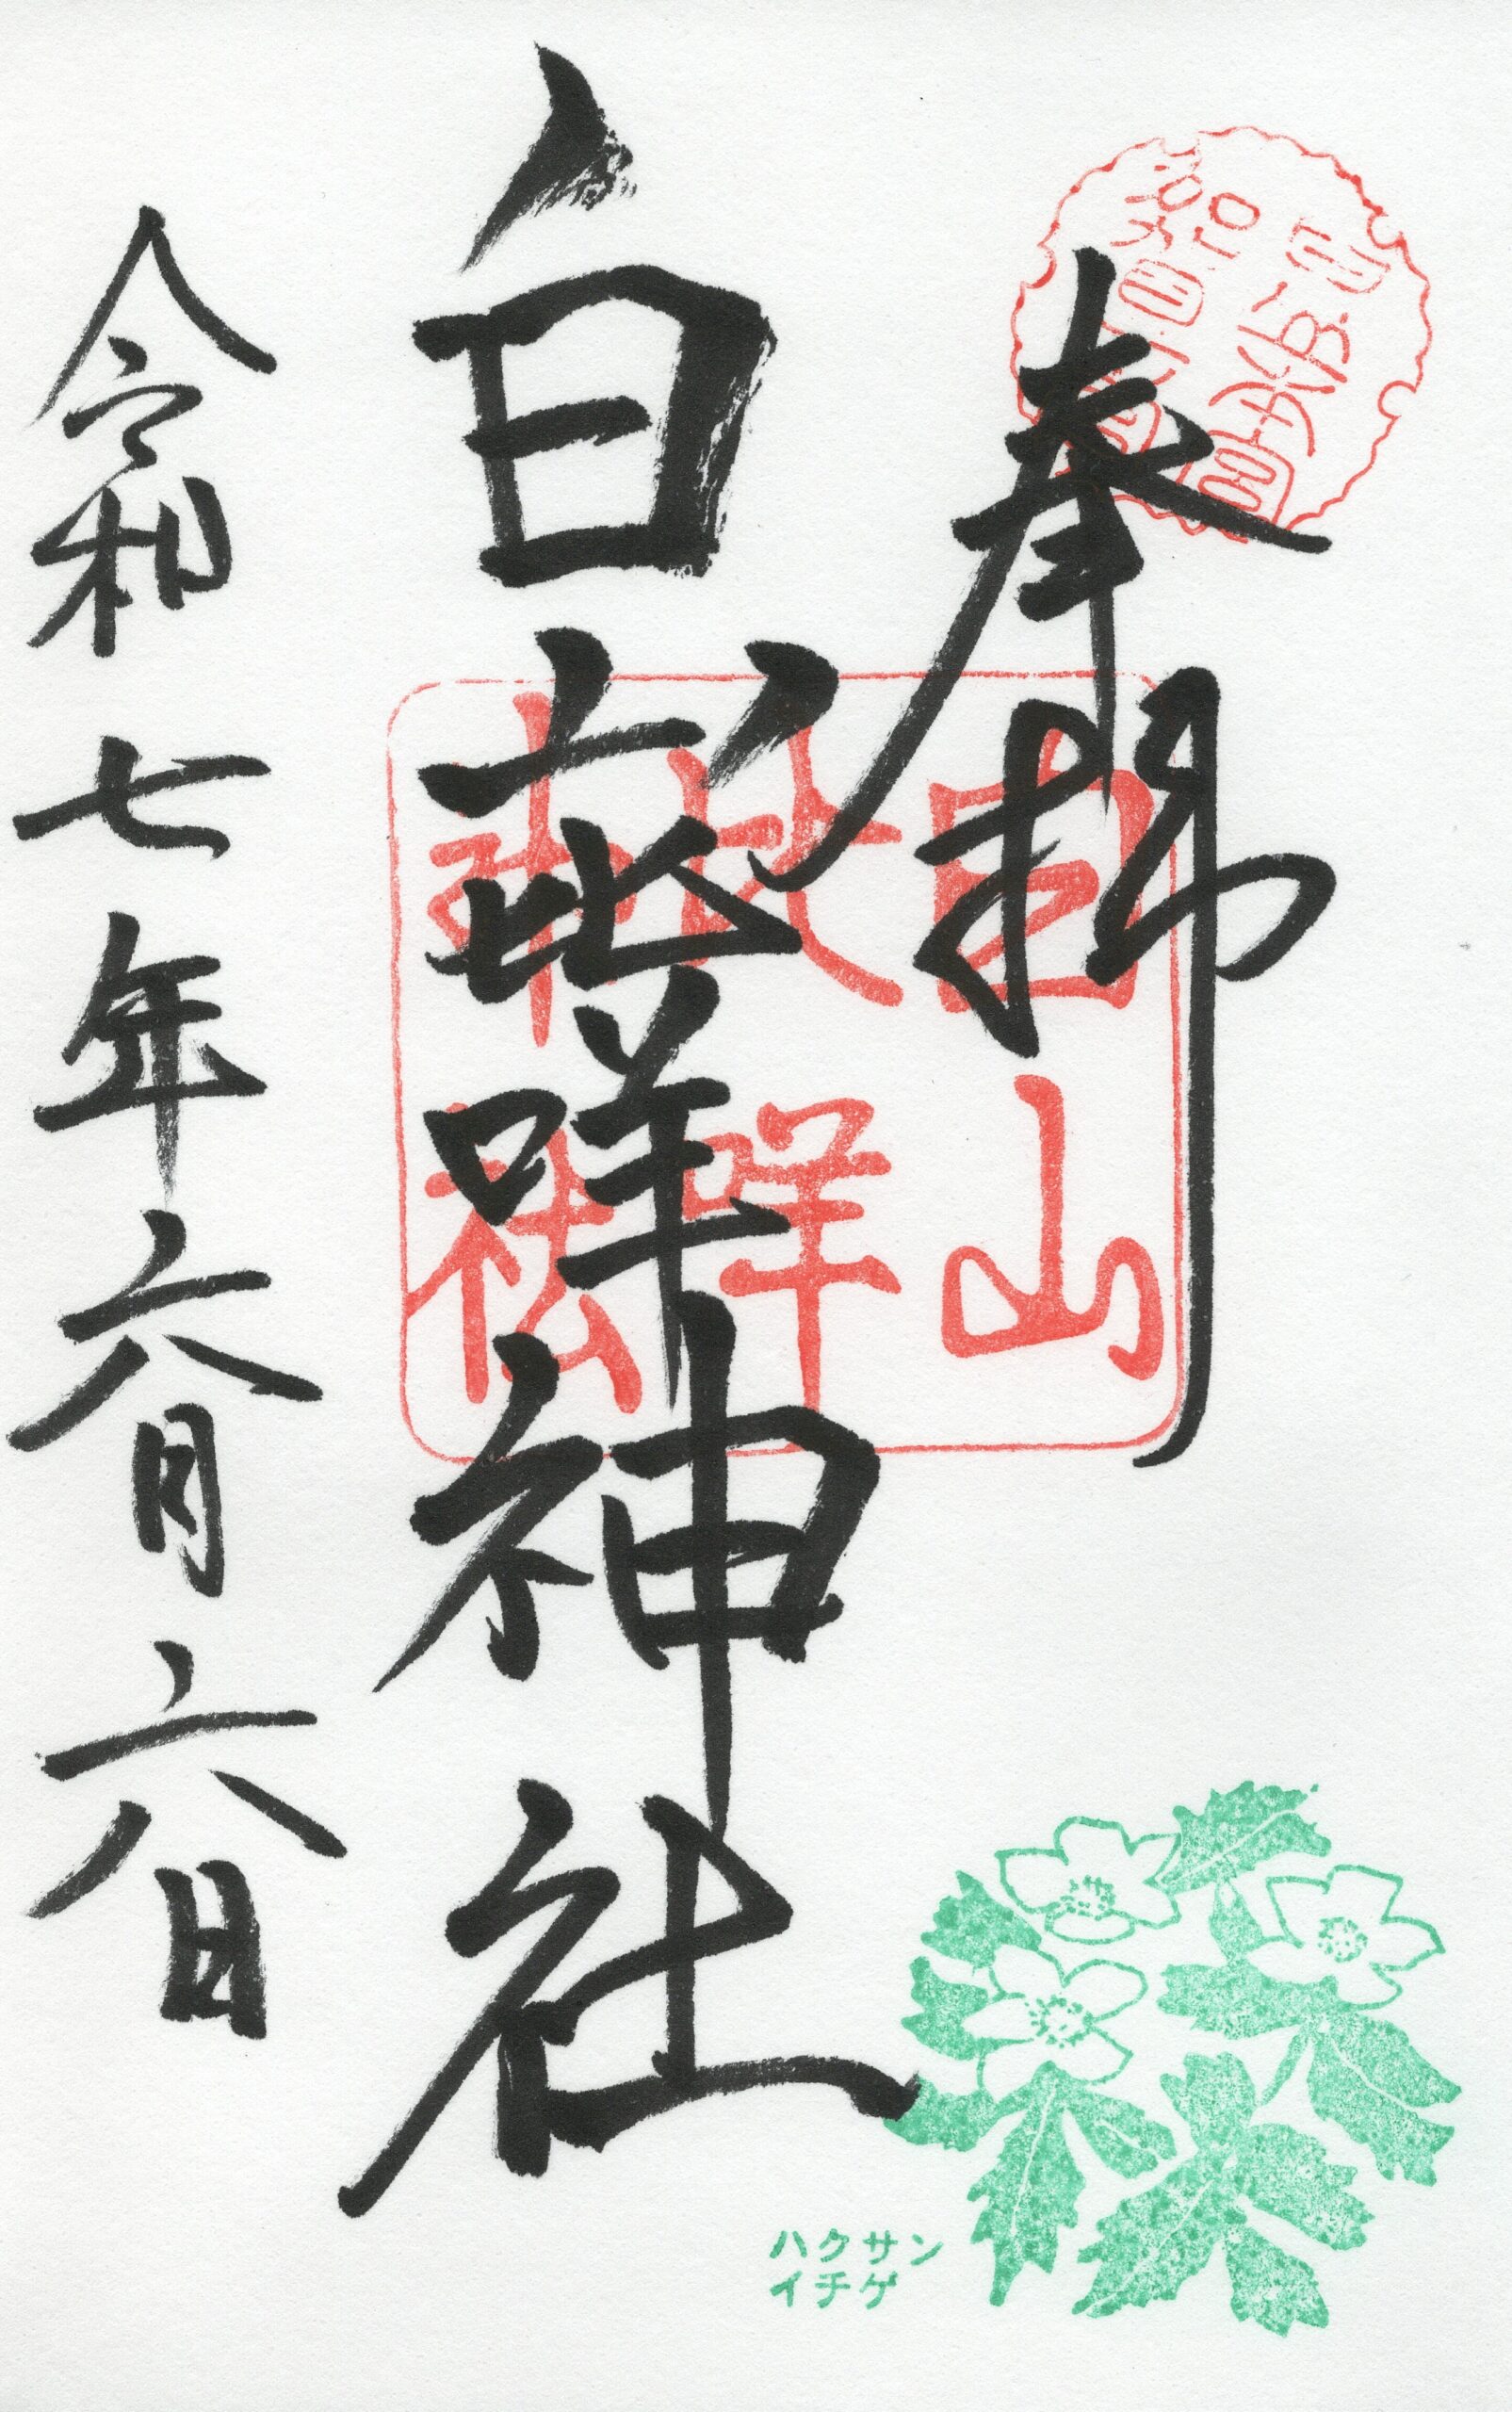 奉拝
白山本宮
加賀
白山
比咩
神社
白山比咩神社
令和七年六月六日
ハクサン
イチゲ